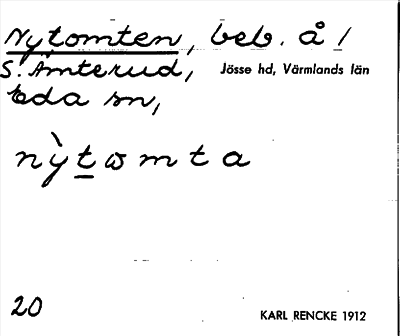 Nytomten, beb. å /
S. Ämterud, Jösse hd, Värmlands län
Eda sn,
nỳtωmta
20 KARL RENCKE 1912